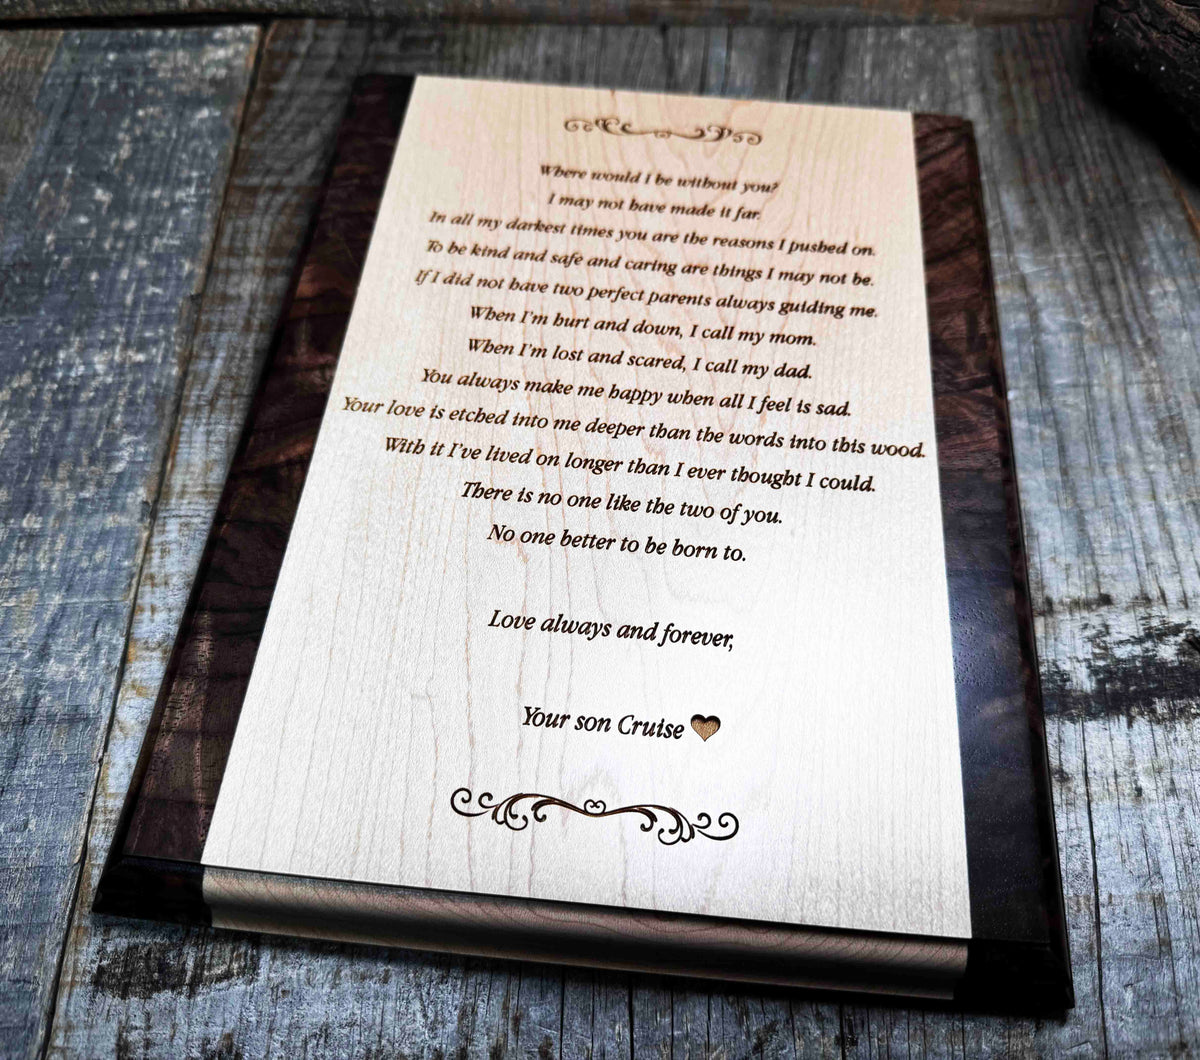 Where would I be without you?
I may not have made it far.
In all my darkest times you are the reasons I pushed on.
To be kind and safe and caring are things I may not be.
If I did not have two perfect parents always guiding me.
When I'm hurt and down, I call my mom.
When I'm lost and scared, I call my dad.
You always make me happy when all I feel is sad.
Your love is etched into me deeper than the words into this wood.
With it I've lived on longer than I ever thought I could.
There is no one like the two of you.
No one better to be born to.
Love always and forever,
Your son Cruise